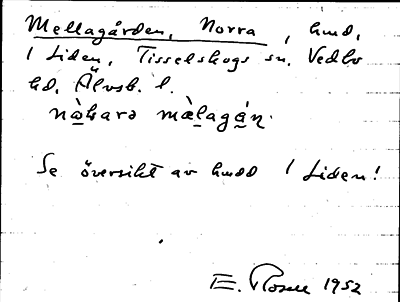 Mellagården, Norra, hmd,
1 Liden, Tisselskogs sn. Vedbo
hd. Älvsb. l.
nòkarə mæ̀lagán.
Se översikt av hmdd 1 Liden!
E. Rosell 1952